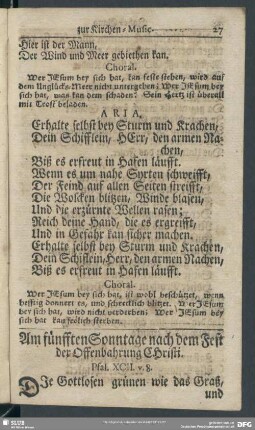 zur Kirchen-Music. 27
Hier ist der Mann,
Der Wind und Meer gebiethen kan.
Choral.
Wer JEsum bey sich hat, kan feste stehen, wird auf
dem Unglücks-Meer nicht untergehen; Wer JEsum bey
sich hat, was kan dem schaden? Sein Hertz ist überall
mit Trost beladen.
ARIA.
Erhalte selbst bey Sturm und Krachen,
Dein Schifflein, HErr, den armen Na-
chen,
Biß es erfreut in Hafen läufft.
Wenn es um nahe Syrten schweifft,
Der Feind auf allen Seiten streifft,
Die Wolcken blitzen, Winde blasen,
Und die erzürnte Wellen rasen;
Reich deine Hand, die es ergreifft,
Und in Gefahr kan sicher machen.
Erhalte selbst bey Sturm und Krachen,
Dein Schifflein, Herr, den armen Nachen,
Biß es erfreut in Hafen läufft.
Choral.
Wer JEsum bey sich hat, ist wohl beschützet, wenn
hefftig donnert es, und schrecklich blitzet. Wer JEsum
bey sich hat, wird nicht verderben: Wer JEsum bey
sich hat
Am fünfften Sonntage nach dem Fest
der Offenbahrung Christi.
Psal. XCII. v. 8.
DJe Gottlosen grünen wie das Graß,
und
SLUB
DFG